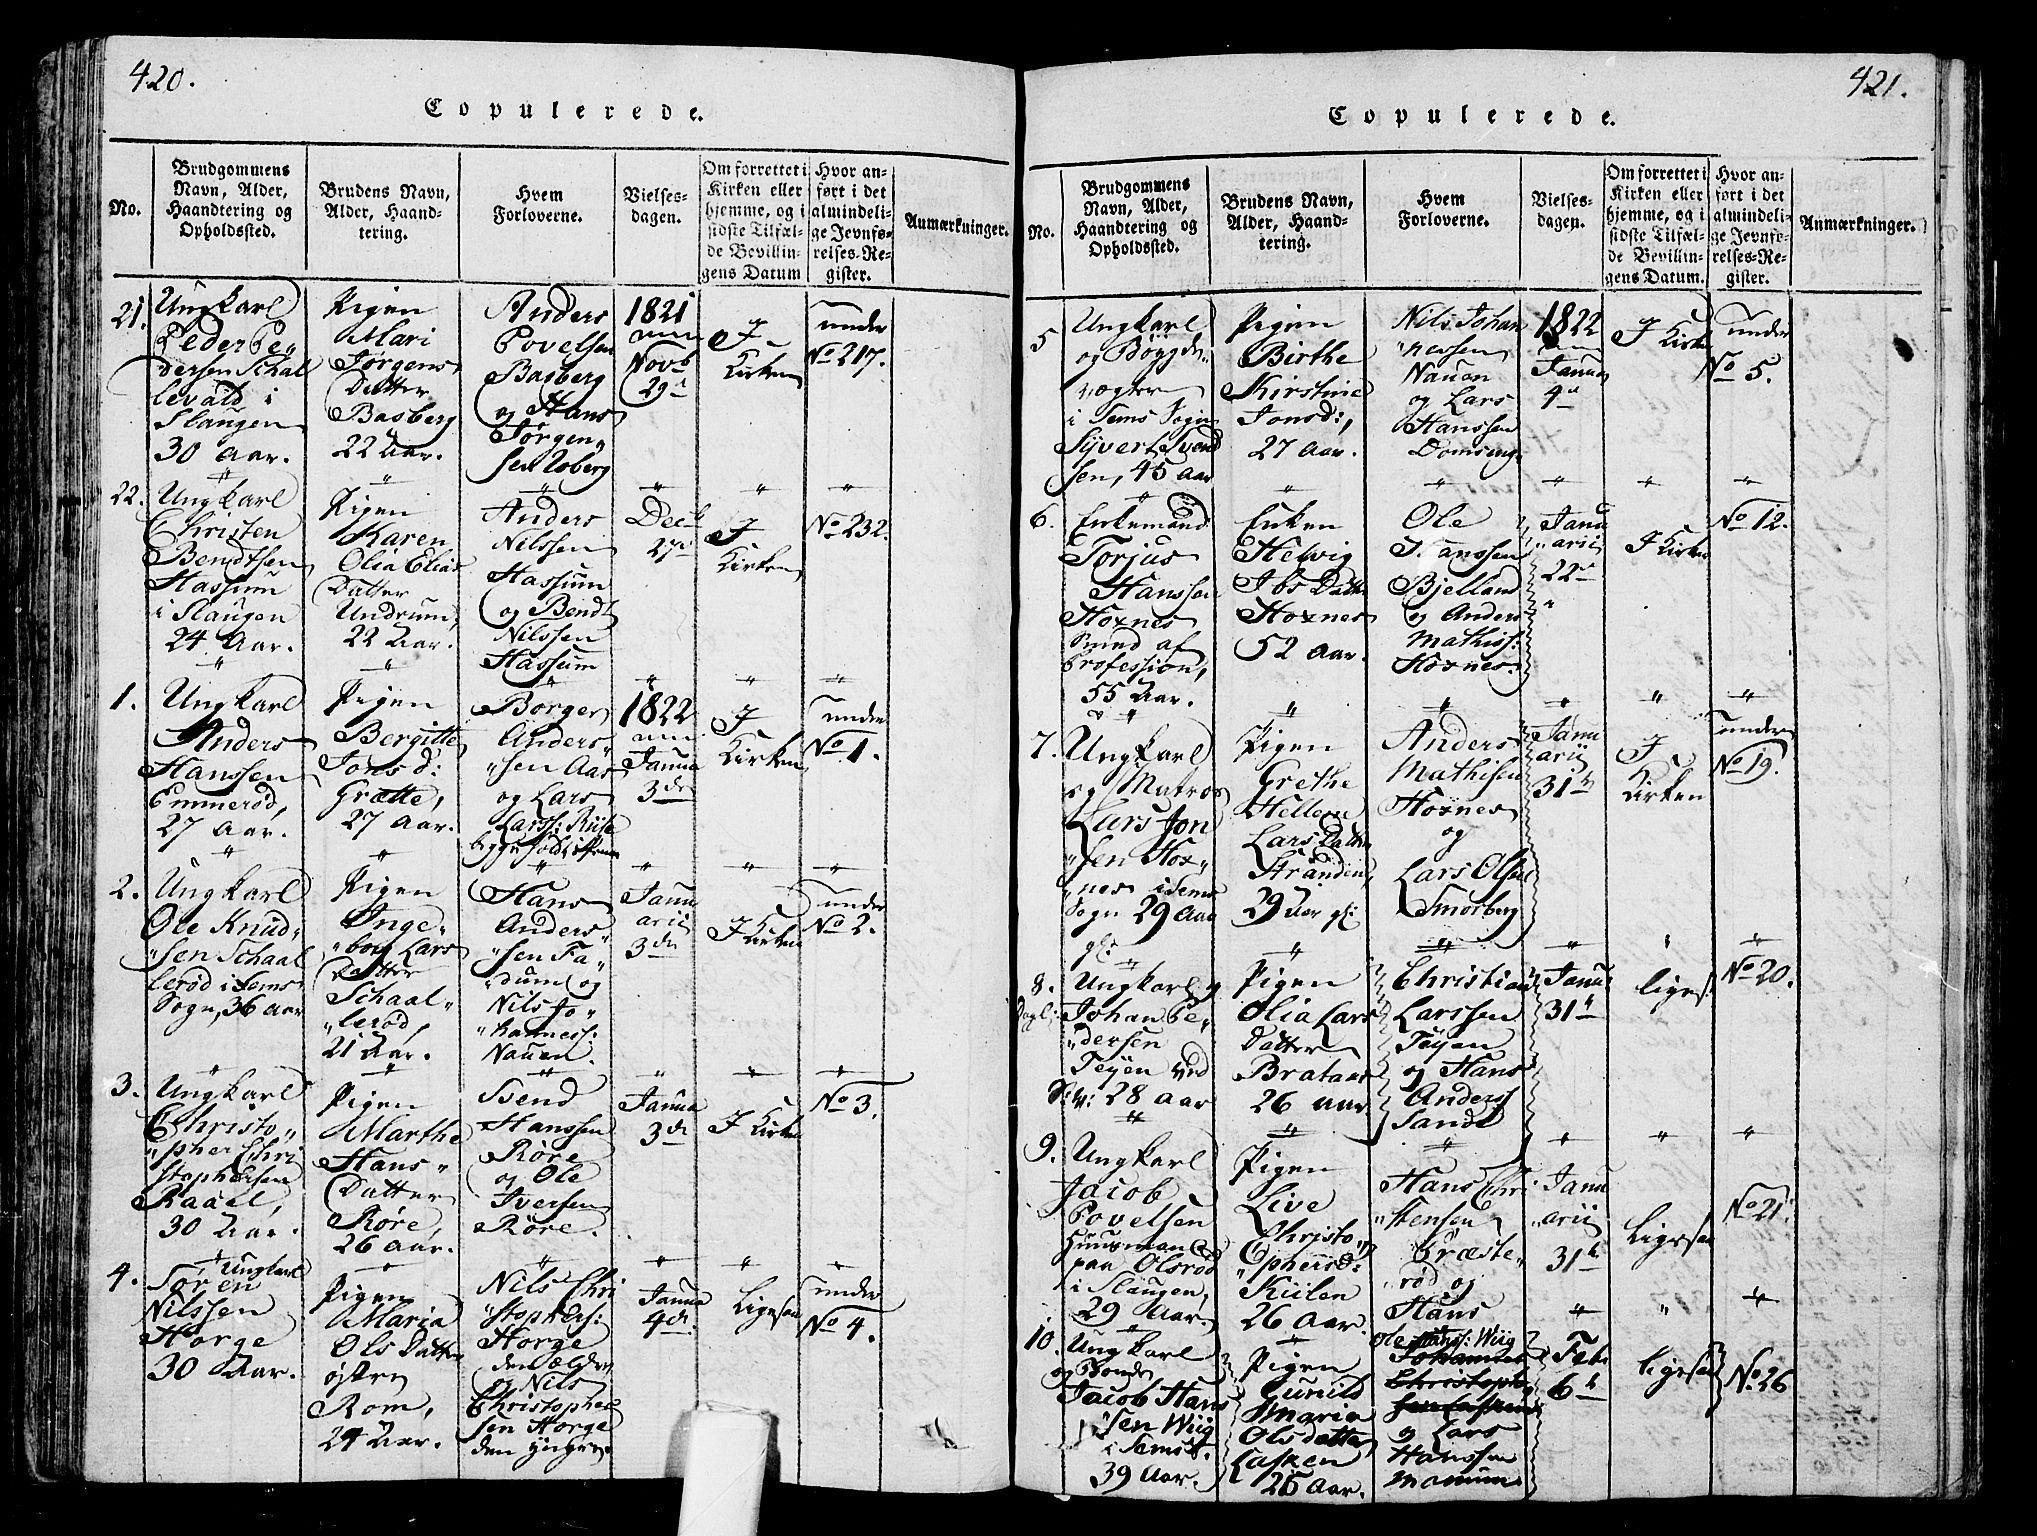 420.
Copulerede.
No.
Brudgommens
Navn, Alder,
Haandtering og
Opholdssted.
Brudens Navn,
Alder, Haand-
tering.
Hvem
Forloverne.
Vielses-
dagen.
Om forrettet i
Kirken eller
hjemme, og i
sidste Tilfæl-
de Bevillin-
gens Datum
Hvor an-
ført i det
almindeli-
ge Jevnfø-
relses-Re-
gister.
Anmærkninger.
21.
Ungkarl
Peder Pe„
dersen Schal
levald i
Slaugen
30 Aar.
Pigen
Mari
Jörgens
Datter
Basberg
22 Aar.
Anders
Povelsen
Basberg
og Hans
Jörgen„
sen
1821
Novb
29
I
Kirken
under
No 217.
22.
Ungkarl
Christen
Bendtsen
Hassum
i Slaugen
24 Aar.
Pigen
Karen
Olia Elias
Datter
Undrum,
22 Aar.
Anders
Nilssen
Hassum
og Bendt
Nilssen
Hassum
Dec
27
I
Kirken
No 232.
1.
Ungkarl
Anders
Hanssen
Emmerød,
27 Aar.
Pigen
Bergitte
Jonsd:
Grætte,
27 Aar.
Borger
Anders„
„sen Aas
og Lars
Larss:
1822
Janua
3die
I
Kirken
under
No 1.
2.
Ungkarl
Ole Knud„
„sen Schaal
lerød i Sems
Sogn, 36 aar
Pigen
Inge„
„borg Lars
Datter
Schaal„
„lerød,
21 Aar.
Hans
Anders„
„sen Fa„
„dum og
Nils Jo„
„hanness:
Nauen.
Janu
arii
3die
I Kirken
under
No 2.
3.
Ungkarl
Christo„
„pher Chri
stophersen
Raael,
30 Aar.
Pigen
Marthe
Hans„
Datter
Røre,
26 aar.
Svend
Hanssen
Røre
og Ole
Iversen
Røre.
Janua
3die
I Kirken
No 3.
4.
Ungkarl
Sören
Nilssen
Horge
30 Aar.
Pigen
Maria
Ols Datter
østre
Rom,
24 Aar.
Nils Chri
„stophers:
Horge
den ældre
og Nils
Christopher
sen Horge
den yngre.
Janua
4de
Ligesaa
under
No 4.
421.
Copulerede.
No.
Brudgommens
Navn, Alder,
Haandtering og
Opholdssted.
Brudens Navn,
Alder, Haand-
tering.
Hvem
Forloverne.
Vielses-
dagen.
Om forrettet i
Kirken eller
hjemme, og i
sidste Tilfæl-
de Bevillin-
gens Datum.
Hvor an-
ført i det
almindeli-
ge Jevnfø-
relses-Re-
gister.
Anmærkninger.
5
Ungkarl
og Böygde„
vægter
i Sems Sogn
Syvert Svend
sen, 45 aar
Pigen
Birthe
Kirstine
Jonsd:,
27 Aar.
Nils Johan
„nessen
Nauen
og Lars
Hanssen
1822
Janua
4
I Kirken
under
No 5.
6.
Enkemand
Torjus
Hanssen
Hoxnes
Smed af
Profession,
55 Aar.
Enken
Helvig
Ibs Datter
Hoxnes
52 aar.
Ole
Hanssen
Bjelland
og Anders
Mathiss:
Hoxnes.
Janu
„arii
22
I Kirken
No 12.
7.
Ungkarl
og Matros
Lars Jon
„sen Hox„
„nes i Sems
Sogn 29 Aar
gl:
Pigen
Grethe
Hellene
Lars Datter
Stranden,
29 Aar gl:
Anders
Mathisen
Hoxnes
og
Lars Olsen
Smorberg
Janu
arii
31
I
Kirken
under
No 19.
8.
Ungkarl
Johan Pe„
„dersen
Teyen ved
28 aar
Pigen
Olia Lars
Datter
Brataas
26 aar
Christian
Larssen
Teyen
og Hans
Anderss
Sande
Janu
31
ligesa
No 20.
9.
Ungkarl
Jacob
Povelsen
Huusmand
paa Olsrød
i Slaugen,
29 Aar.
Pigen
Live
Christo„
„phersd:
Kiilen
26 Aar.
Hans Chri
„stensen
Græste„
„rød og
Hans
Janu
„arii
31
Ligesaa
No 21.
10.
Ungkarl
og Bonde
Jacob Hans
„sen Wiig
i Sems S.
39 Aar.
Pigen
Gunild
Maria
Olsdatter
Lasken
25 Aar.
Ole Hanss: Wiig
Johannes
Christopher
sen Lasken
og Lars
Hanssen
Manum
Feb
6
ligesaa
No. 26